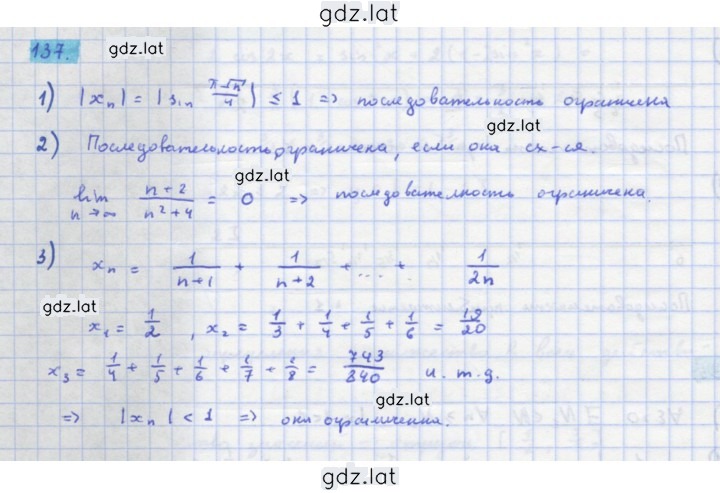 gdz.lat
137. gdz.lat
1) |xₙ| = |sin (π-√n)/4| ≤ 1 => последовательность ограничена
gdz.lat
2) Последовательность ограничена, если она сх-ся.
gdz.lat
lim n→∞ (n+2)/(n²+4) = 0 => последователность ограничена.
3) xₙ = 1/(n+1) + 1/(n+2) + ... + 1/2n
gdz.lat gdz.lat
x₁ = 1/2, x₂ = 1/3 + 1/4 + 1/5 + 1/6 = 19/20
x₃ = 1/4 + 1/5 + 1/6 + 1/7 + 1/8 = 743/840 и.т.д.
gdz.lat
=> |xₙ| < 1 => они ограниченна.
gdz.lat